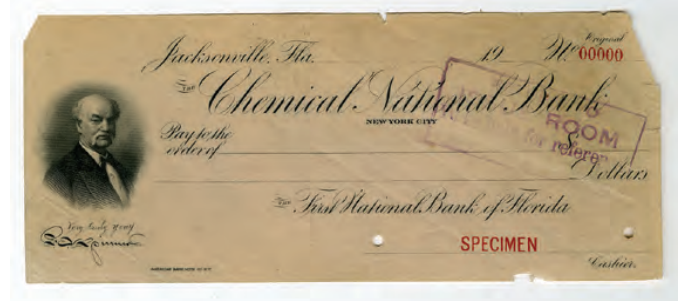 Original
Jacksonville, Fla. 19 No 00000
The Chemical National Bank
NEW YORK CITY
ROOM
for referen
Pay to the
order of $
Dollars
The First National Bank of Florida
Very truly yours
SPECIMEN
Cashier.
AMERICAN BANK NOTE CO. N.Y.